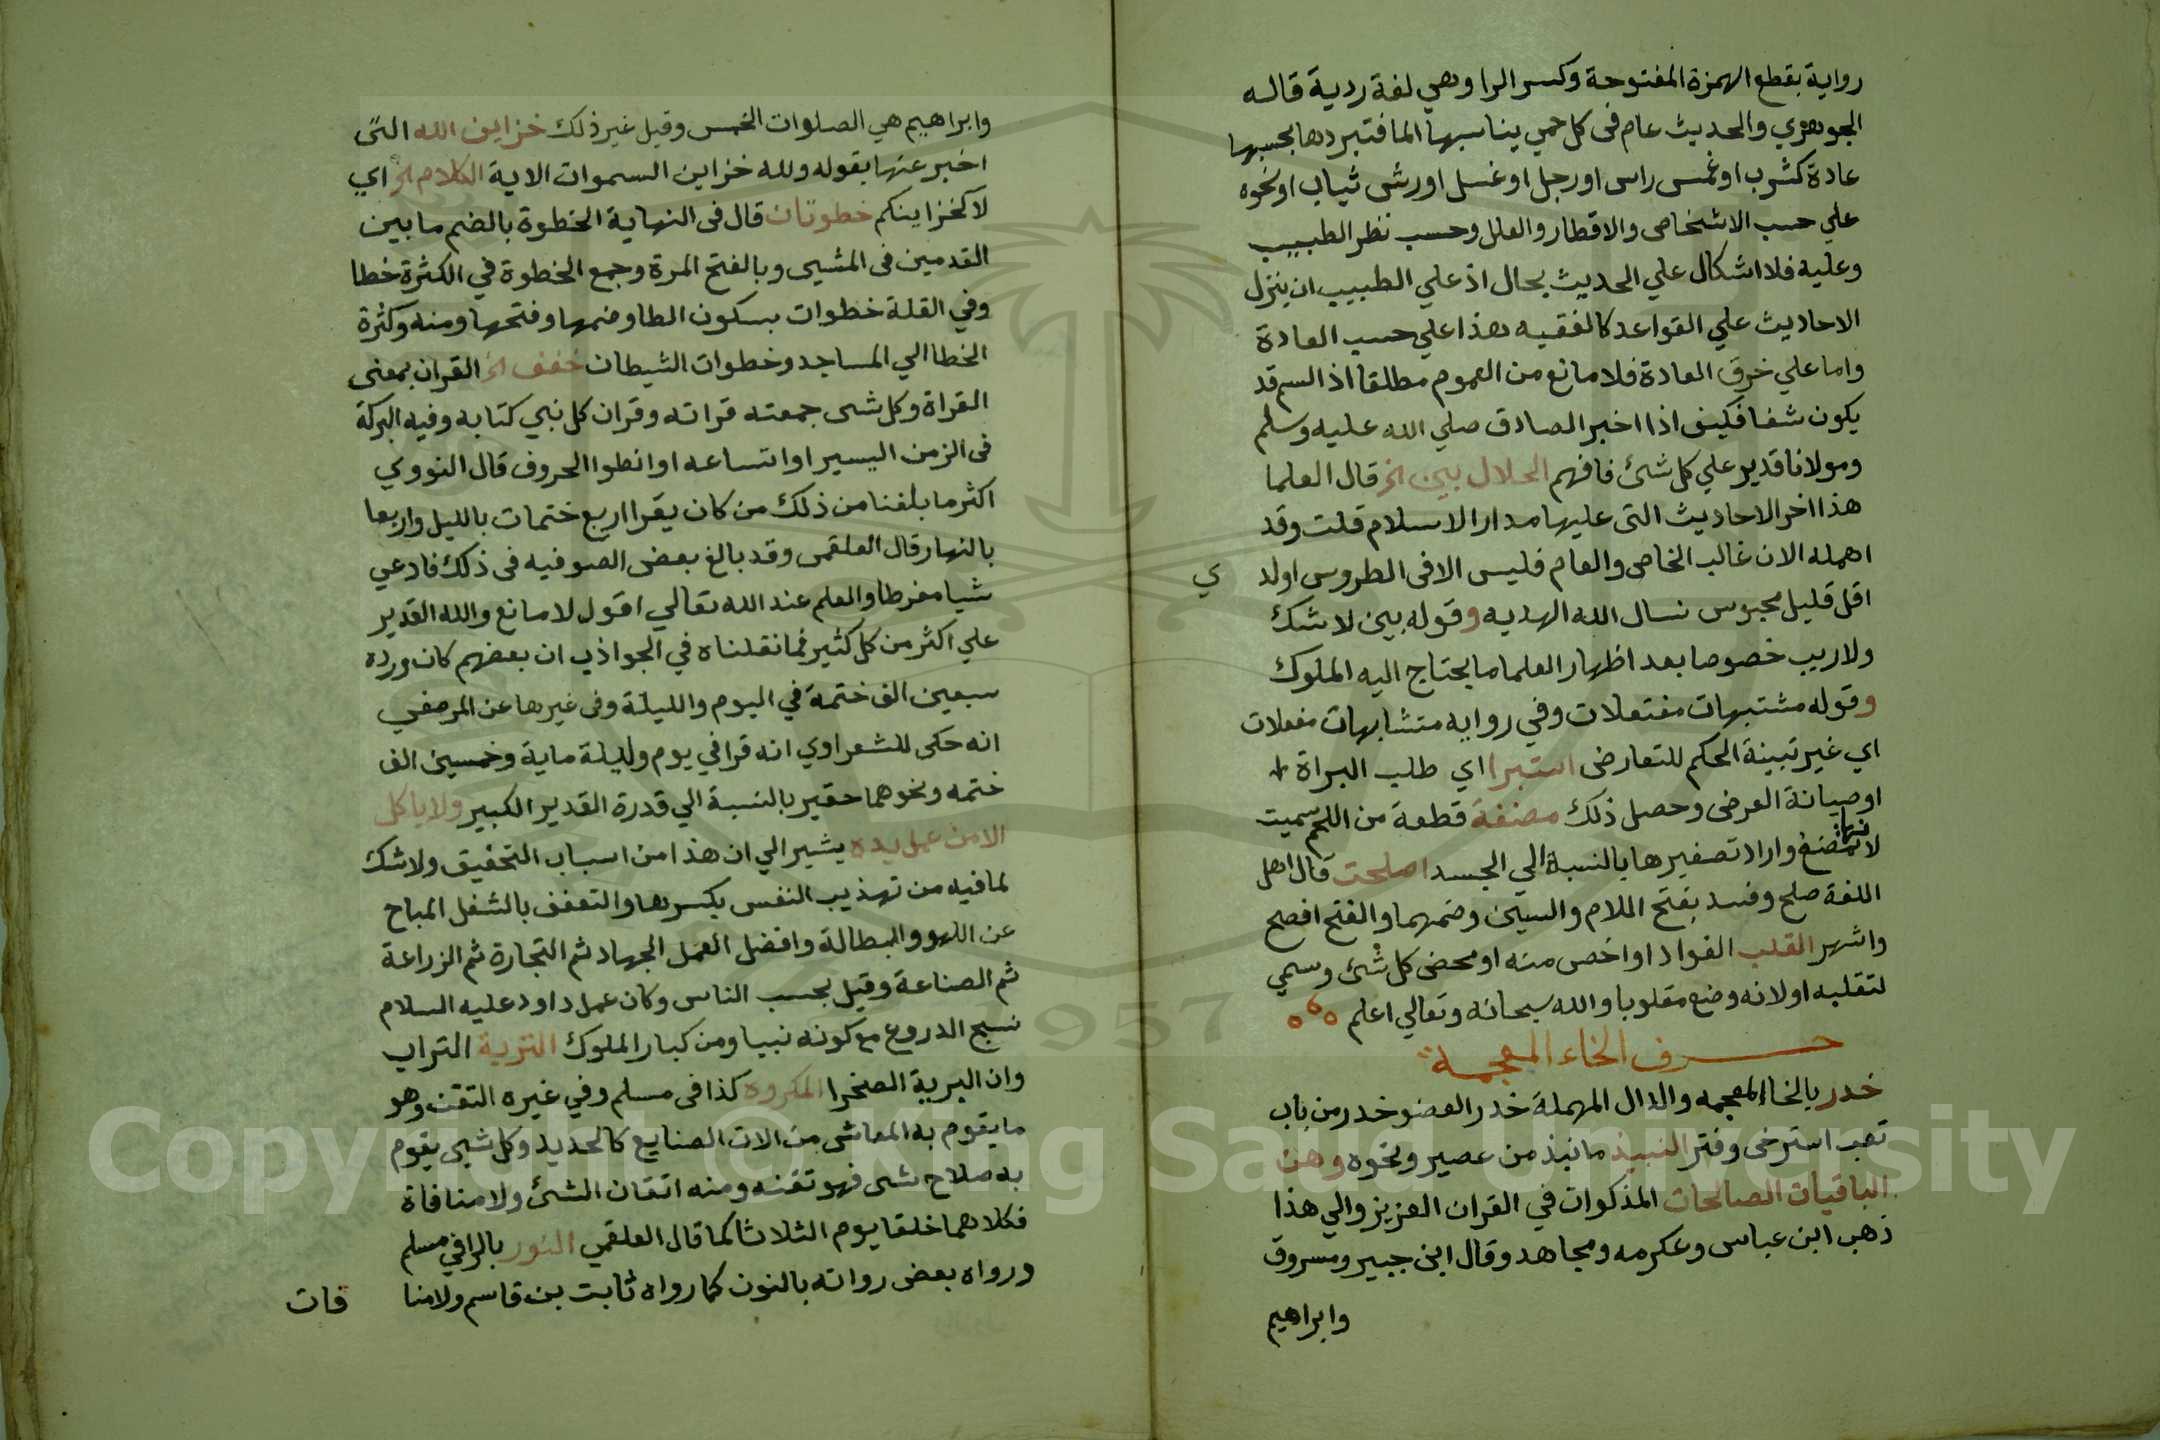 رواية بقطع الهمزة المفتوحة وكسر الرا وهي لغة ردية قاله
الجوهري والحديث عام في كل حمي يناسبها الما فتبردها بحسبها
عادة كشرب او غمس راس او رجل او غسل او رش ثياب او نحوه
علي حسب الاشخاص والاقطار والعلل وحسب نظر الطبيب
وعليه فلا اشكال علي الحديث بحال اذ علي الطبيب ان ينزل
الاحاديث علي القواعد كالفقيه هذا علي حسب العادة
واما علي خرق العادة فلا مانع من العموم مطلقا اذ السم قد
يكون شفا فكيف اذا اخبر الصادق صلي الله عليه وسلم
ومولانا قدير علي كل شئ فافهم الحلال بين الخ قال العلما
هذا اخر الاحاديث التى عليها مدار الاسلام قلت وقد
اهمله الان غالب الخاص والعام فليس الا في الطروس او لد ي
اقل قليل محبوس نسال الله الهديه وقوله بين لا شك
ولا ريب خصوصا بعد اظهار العلما ما يحتاج اليه الملوك
وقوله مشتبهات مفتعلات وفي روايه متشابهات مفعلات
اي غير تبينة الحكم للتعارض استبرا اي طلب البراة
او صيانة العرض وحصل ذلك مضغة قطعة من اللحم سميت
لانها تمضغ واراد تصغيرها بالنسبة الي الجسد اصلحت قال اهل
اللغة صلح وفسد بفتح اللام والسين وضمهما والفتح افصح
واشهر القلب الفواد او اخص منه او محض كل شئ وسمي
لتقلبه او لانه وضع مقلوبا والله سبحانه وتعالي اعلم
حرف الخاء المعجمة
خدر بالخا المعجمه والدال المهملة خدر العضو خدر من باب
تعب استرخى وفتر النبيذ ما نبذ من عصير ونحوه وهن
الباقيات الصالحات المذكوات في القران العزيز والي هذا
ذهب ابن عباس وعكرمه ومجاهد وقال ابن جبير ومسروق
وابراهيم
وابراهيم هي الصلوات الخمس وقيل غير ذلك خزاين الله التي
اخبر عنها بقوله ولله خزاين السموات الاية الكلام الخ اي
لا كخزاينكم خطوتان قال في النهاية الخطوة بالضم ما بين
القدمين في المشي وبالفتح المرة وجمع الخطوة في الكثرة خطا
وفي القلة خطوات بسكون الطا وضمها وفتحها ومنه وكثرة
الخطا الي المساجد وخطوات الشيطان خفف الخ القران بمعنى
القراة وكل شى جمعته قراته وقران كل نبي كتابه وفيه البركة
في الزمن اليسير او اتساعه او انطوا الحروف قال النووي
اكثر ما بلغنا من ذلك من كان يقرا اربع ختمات بالليل واربعا
بالنهار قال العلقمى وقد بالغ بعض الصوفيه في ذلك فادعي
شيا مفرطا والعلم عند الله تعالي اقول لا مانع والله القدير
علي اكثر من كل كثير فما نقلناه في الجواذب ان بعضهم كان ورده
سبعين الف ختمة في اليوم والليلة وفي غيرها عن المرصفي
انه حكى للشعراوي انه قرا في يوم وليلة ماية وخمسين الف
ختمه ونحوهما حقير بالنسبة الي قدرة القدير الكبير ولا ياكل
الا من عمل يده يشير الي ان هذا من اسباب التحفيق ولا شك
لما فيه من تهذيب النفس بكسرها والتعفف بالشغل المباح
عن اللهو والبطالة وافضل العمل الجهاد ثم التجارة ثم الزراعة
ثم الصناعة وقيل بحسب الناس وكان عمل داود عليه السلام
نسج الدروع مع كونه نبيا ومن كبار الملوك التربة التراب
وان البرية الصخرا المكروه كذا في مسلم وفي غيره التقن وهو
ما يقوم به المعاش من الات الصنايع كالحديد وكل شي يقوم
به صلاح شى فهو تقنه ومنه اتقان الشئ ولا منافاة
فكلاهما خلقا يوم الثلاثا كما قال العلقمي النور بالرا في مسلم
ورواه بعض رواته بالنون كما رواه ثابت بن قاسم ولا منا
فات
1957
Copyright © King Saud University